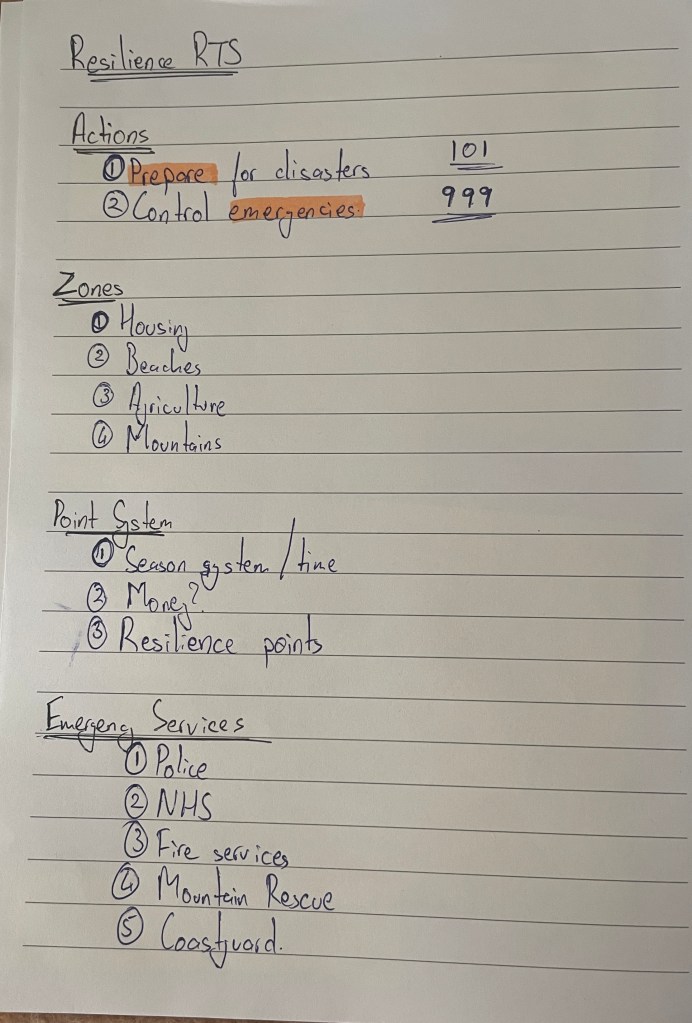 Resilience RTS
Actions
① Prepare for disasters 101
② Control emergencies. 999
Zones
① Housing
② Beaches
③ Agriculture
④ Mountains
Point System
① Season system / time
② Money?
③ Resilience points
Emergency Services
① Police
② NHS
③ Fire services
④ Mountain Rescue
⑤ Coastguard.